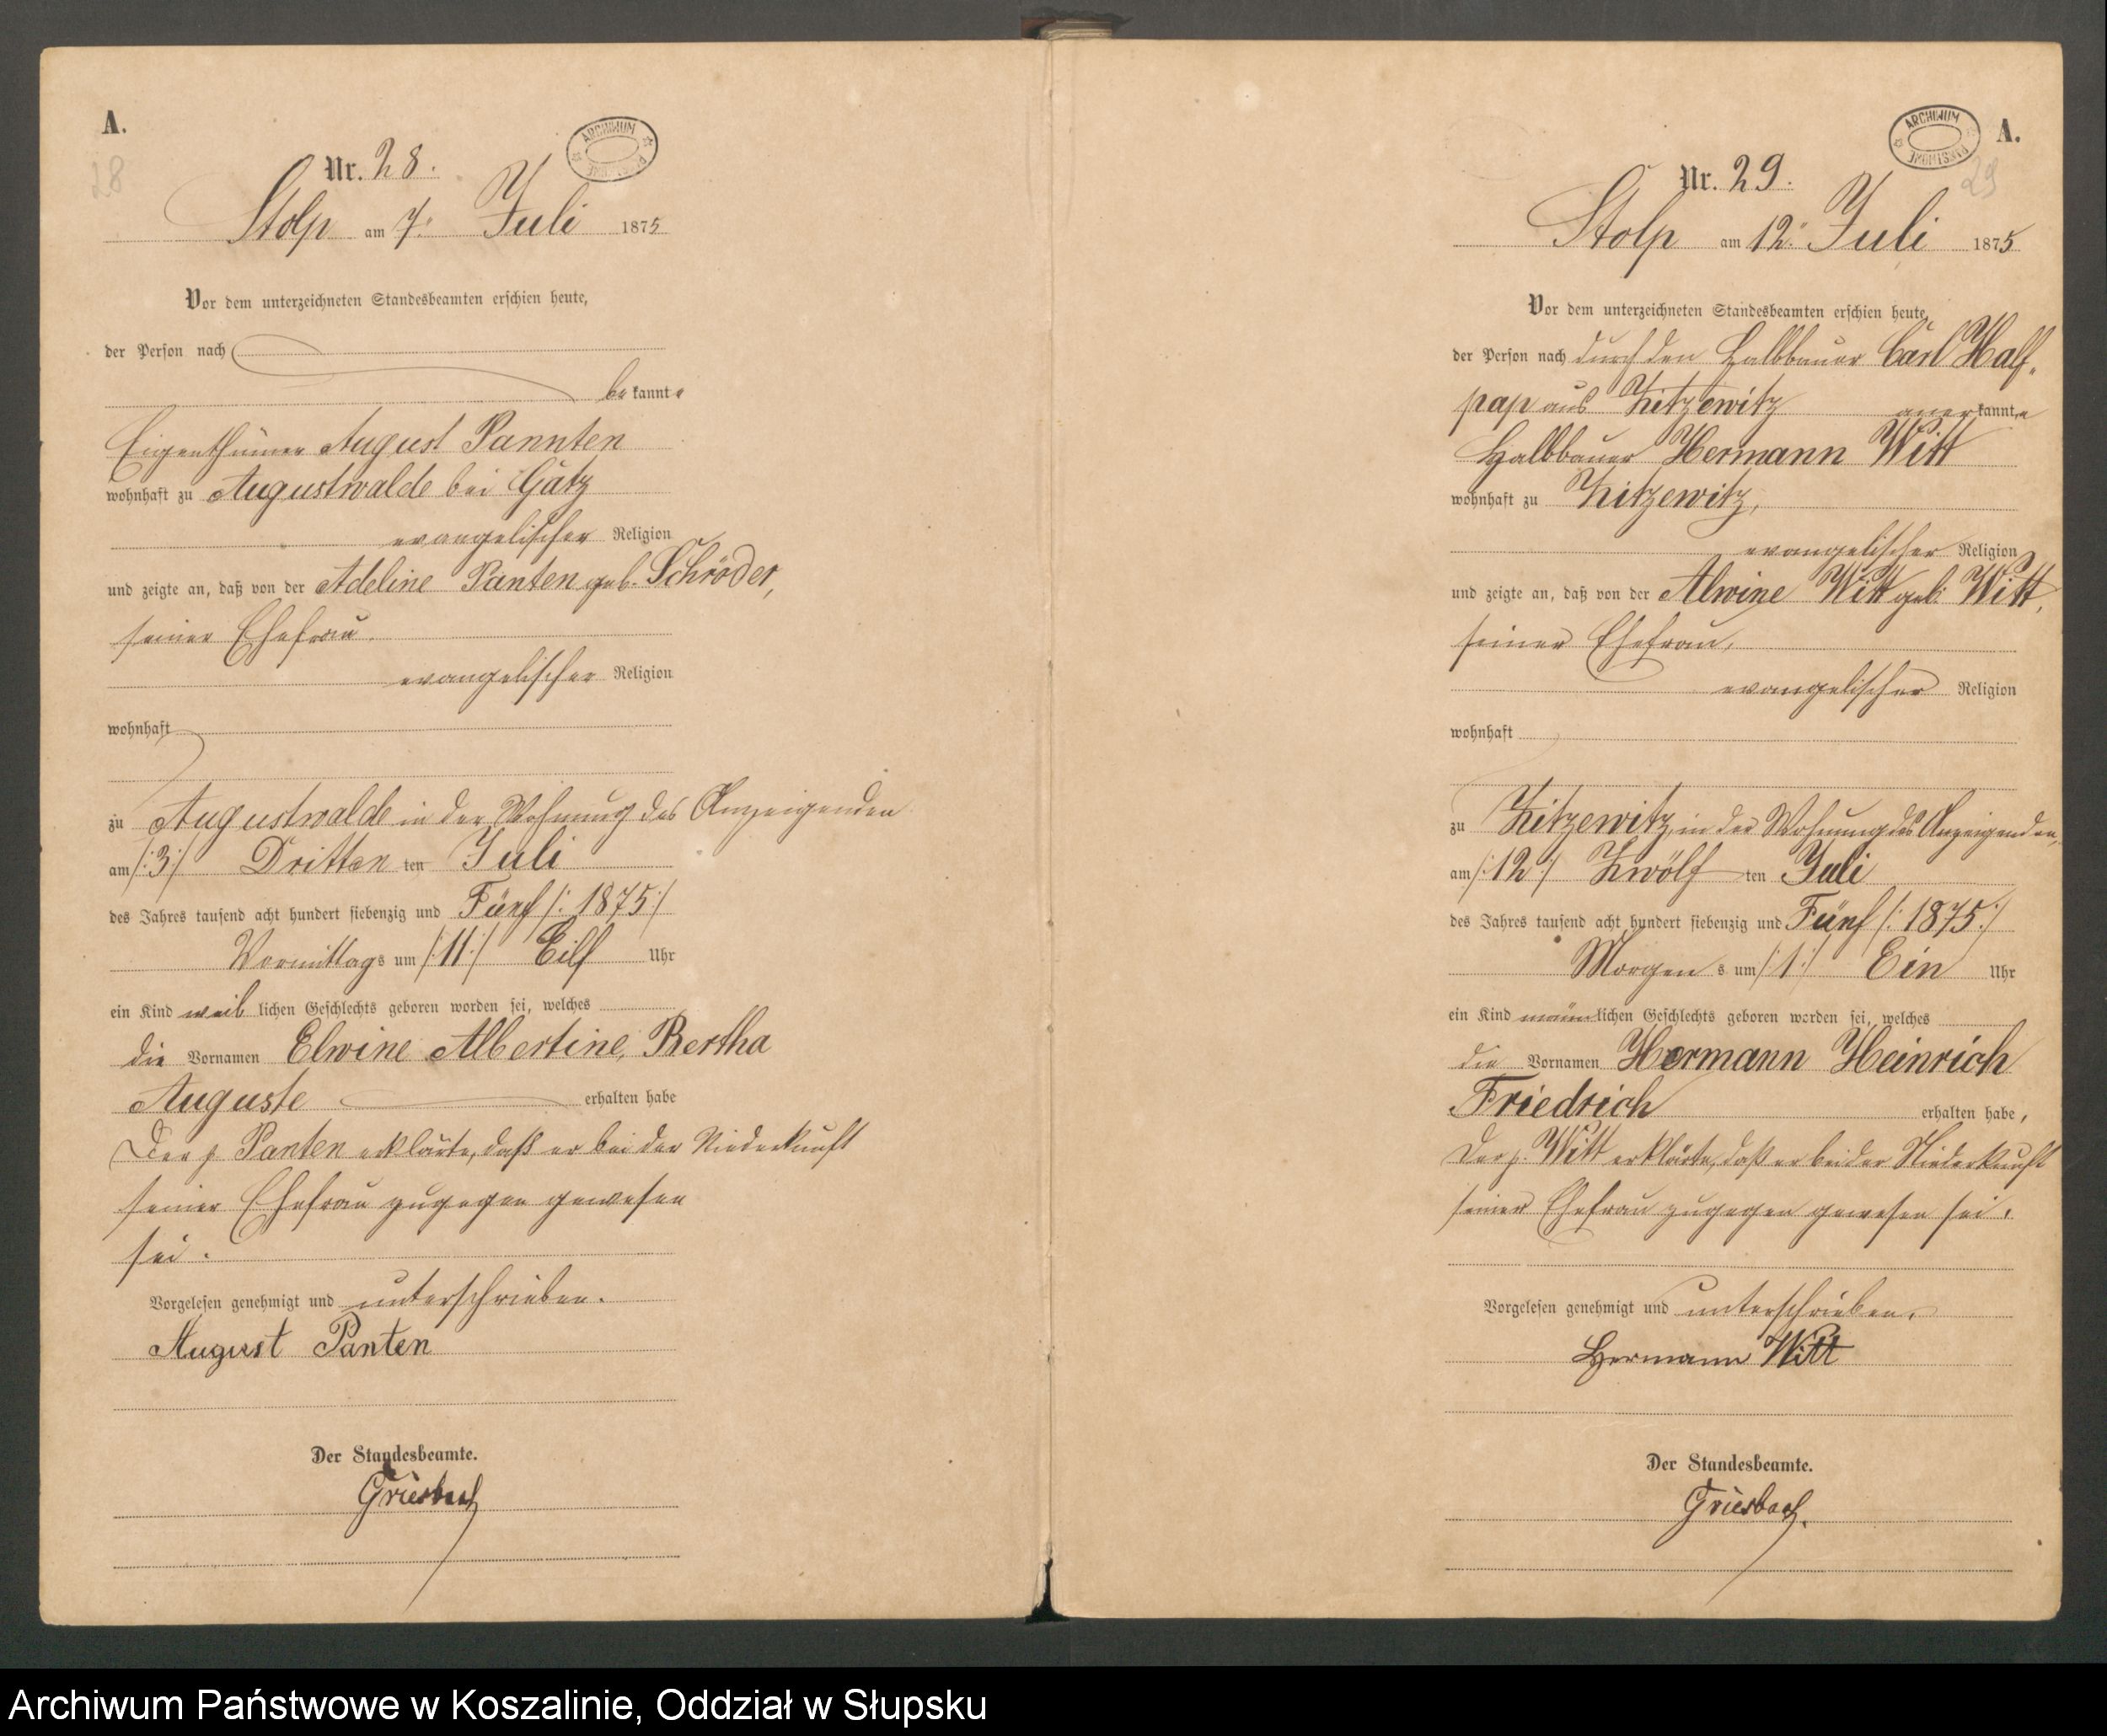 A.
28
Nr. 28.
ARCHIWUM
Stolp am 7. Juli 1875
Vor dem unterzeichneten Standesbeamten erschien heute,
der Person nach
bekannte
Eigenthümer August Pannten
wohnhaft zu Augustwalde bei Gatz
evangelischer Religion
und zeigte an, daß von der Adeline Panten geb. Schröder,
seiner Ehefrau.
evangelischer Religion
wohnhaft
zu Augustwalde in der Wohnung des Anzeigenden
am /:3:/ Dritten ten Juli
des Jahres tausend acht hundert siebenzig und Fünf /: 1875:/
Vormittags um /:11:/ Eilf Uhr
ein Kind weiblichen Geschlechts geboren worden sei, welches
die Vornamen Elwine Albertine, Bertha
Auguste erhalten habe
Der p. Panten erklärte, daß er bei der Niederkunft
seiner Ehefrau zugegen gewesen
sei.
Vorgelesen genehmigt und unterschrieben.
August Panten
Der Standesbeamte.
Griesbach
ARCHIWUM PAŃSTWOWE
A.
29
Nr. 29.
Stolp am 12. Juli 1875
Vor dem unterzeichneten Standesbeamten erschien heute,
der Person nach durch den Halbbauer Carl Half-
pap aus Zitzewitz anerkannte
Halbbauer Hermann Witt
wohnhaft zu Zitzewitz,
evangelischer Religion
und zeigte an, daß von der Alwine Witt geb. Witt,
seiner Ehefrau,
evangelischer Religion
wohnhaft
zu Zitzewitz, in der Wohnung des Anzeigenden,
am /:12:/ Zwölf ten Juli
des Jahres tausend acht hundert siebenzig und Fünf /: 1875:/
Morgens um /:1:/ Ein Uhr
ein Kind männlichen Geschlechts geboren worden sei, welches
die Vornamen Hermann Heinrich
Friedrich erhalten habe,
Der p. Witt erklärte, daß er bei der Niederkunft
seiner Ehefrau zugegen gewesen sei.
Vorgelesen genehmigt und unterschrieben.
Hermann Witt
Der Standesbeamte.
Griesbach.
Archiwum Państwowe w Koszalinie, Oddział w Słupsku